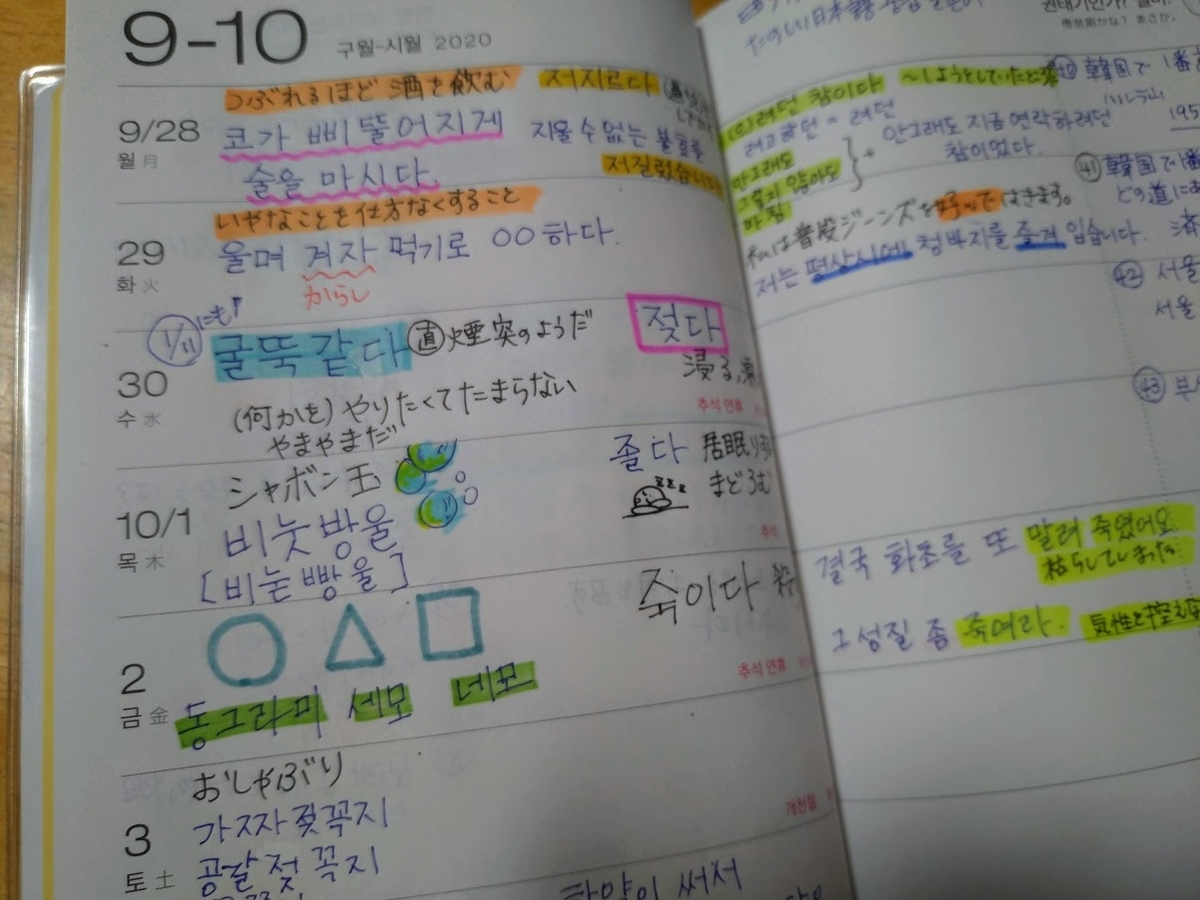 9-10 구월-시월 2020
9/28
월 月
つぶれるほど 酒を飲む
코가 삐뚤어지게
술을 마시다.
저지르다
지울 수 없는 불효를
저질렀습니다
29
화 火
いやなことを仕方なくすること
울며 겨자 먹기로 ○○하다.
からし
30
수 水
1/11 にも!
굴뚝같다 直 煙突のようだ
(何かを) やりたくてたまらない
やまやまだ
젖다
浸る,
추석 연휴
10/1
목 木
シャボン玉
비눗방울
[비눋빵울]
졸다 居眠り
まどろむ
zzz
추석
2
금 金
동그라미 세모 네모
죽이다
추석 연휴
3
토 土
おしゃぶり
가짜젖꼭지
공갈젖꼭지
개천절
써서
たのしい日本語
권태기인가?
倦怠期かな? まさか。
(으)려던 참이다 ~しようとしていたところ
려고하던 = 려던
안그래도
그렇지 않아도
마침
안그래도 지금 연락하려던
참이었다.
私は普段ジーンズを好んではきます。
저는 평상시에 청바지를 즐겨 입습니다.
결국 화초를 또 말려 죽였어요
枯らしてしまった
그 성질 좀 죽여라.
気性を控え
韓国で 1番
ハルラ山
195
㊶ 韓国で1番
どの道にあ
㊷ 서울
서울
㊸ 부